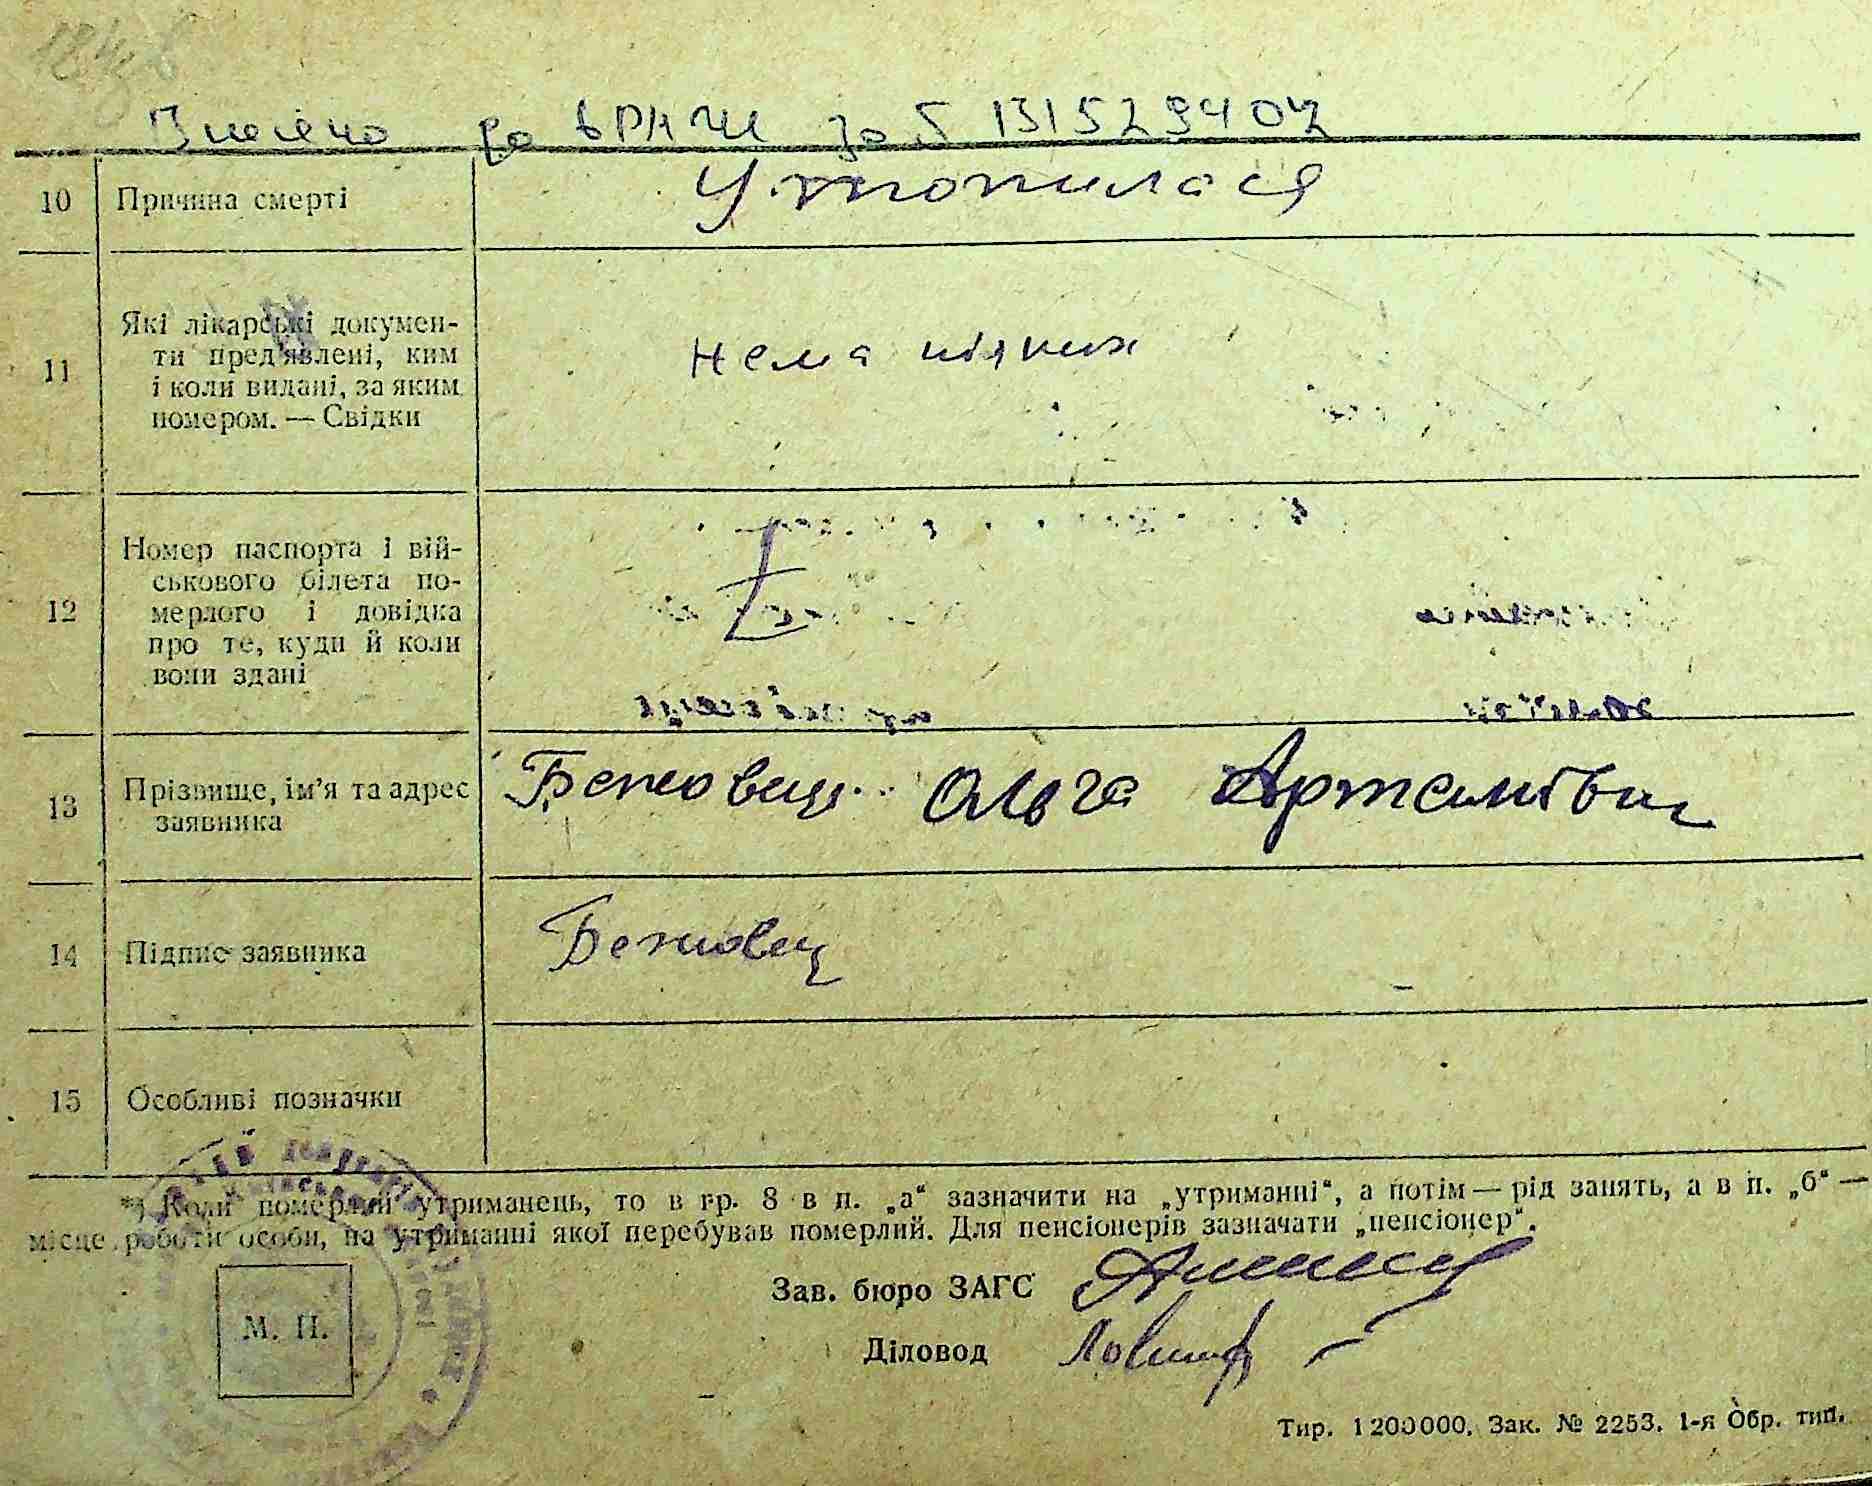 Внесено до ДРАЦС за № 13152940
10 Причина смерті Утопилася
11 Які лікарські докумен-
ти пред'явлені, ким
і коли видані, за яким
номером. — Свідки
Нема ніяких
12 Номер паспорта і вій-
ськового білета по-
мерлого і довідка
про те, куди й коли
вони здані
13 Прізвище, ім'я та адрес
заявника
Ольга Артемівна
14 Підпис заявника
15 Особливі позначки
*) Коли померлий утриманець, то в гр. 8 в п. „а“ зазначити на „утриманні“, а потім — рід занять, а в п. „б“ —
місце роботи особи, на утриманні якої перебував померлий. Для пенсіонерів зазначати „пенсіонер“.
Зав. бюро ЗАГС
М. П.
Діловод
Тир. 1200000. Зак. № 2253. 1-я Обр. тип.